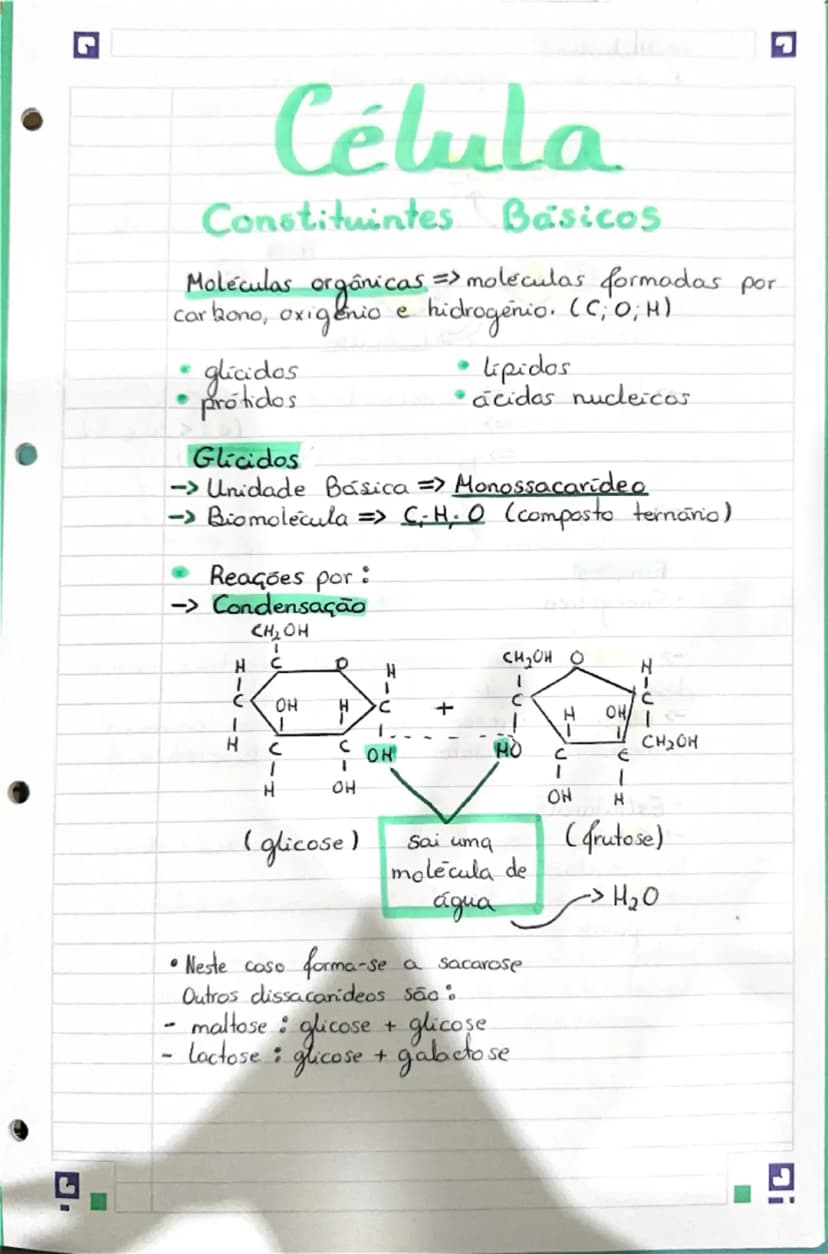 Célula
Constituintes Básicos
Moléculas orgânicas => moléculas formadas por
carbono, oxigênio e hidrogênio. (C; O; H)
• glícidos • lípidos
• prótidos • ácidos nucleicos
Glícidos
-> Unidade Básica => Monossacarídeo
-> Biomolécula => C; H; O (composto ternário)
• Reações por:
-> Condensação
CH₂OH
H C O H CH₂OH O H
C OH H C + C H OH C
H C C OH HO C C CH₂OH
H OH OH H
(glicose) (frutose)
Sai uma
molécula de
água -> H₂O
• Neste caso forma-se a sacarose
Outros dissacarídeos são:
- maltose : glicose + glicose
- lactose : glicose + galactose